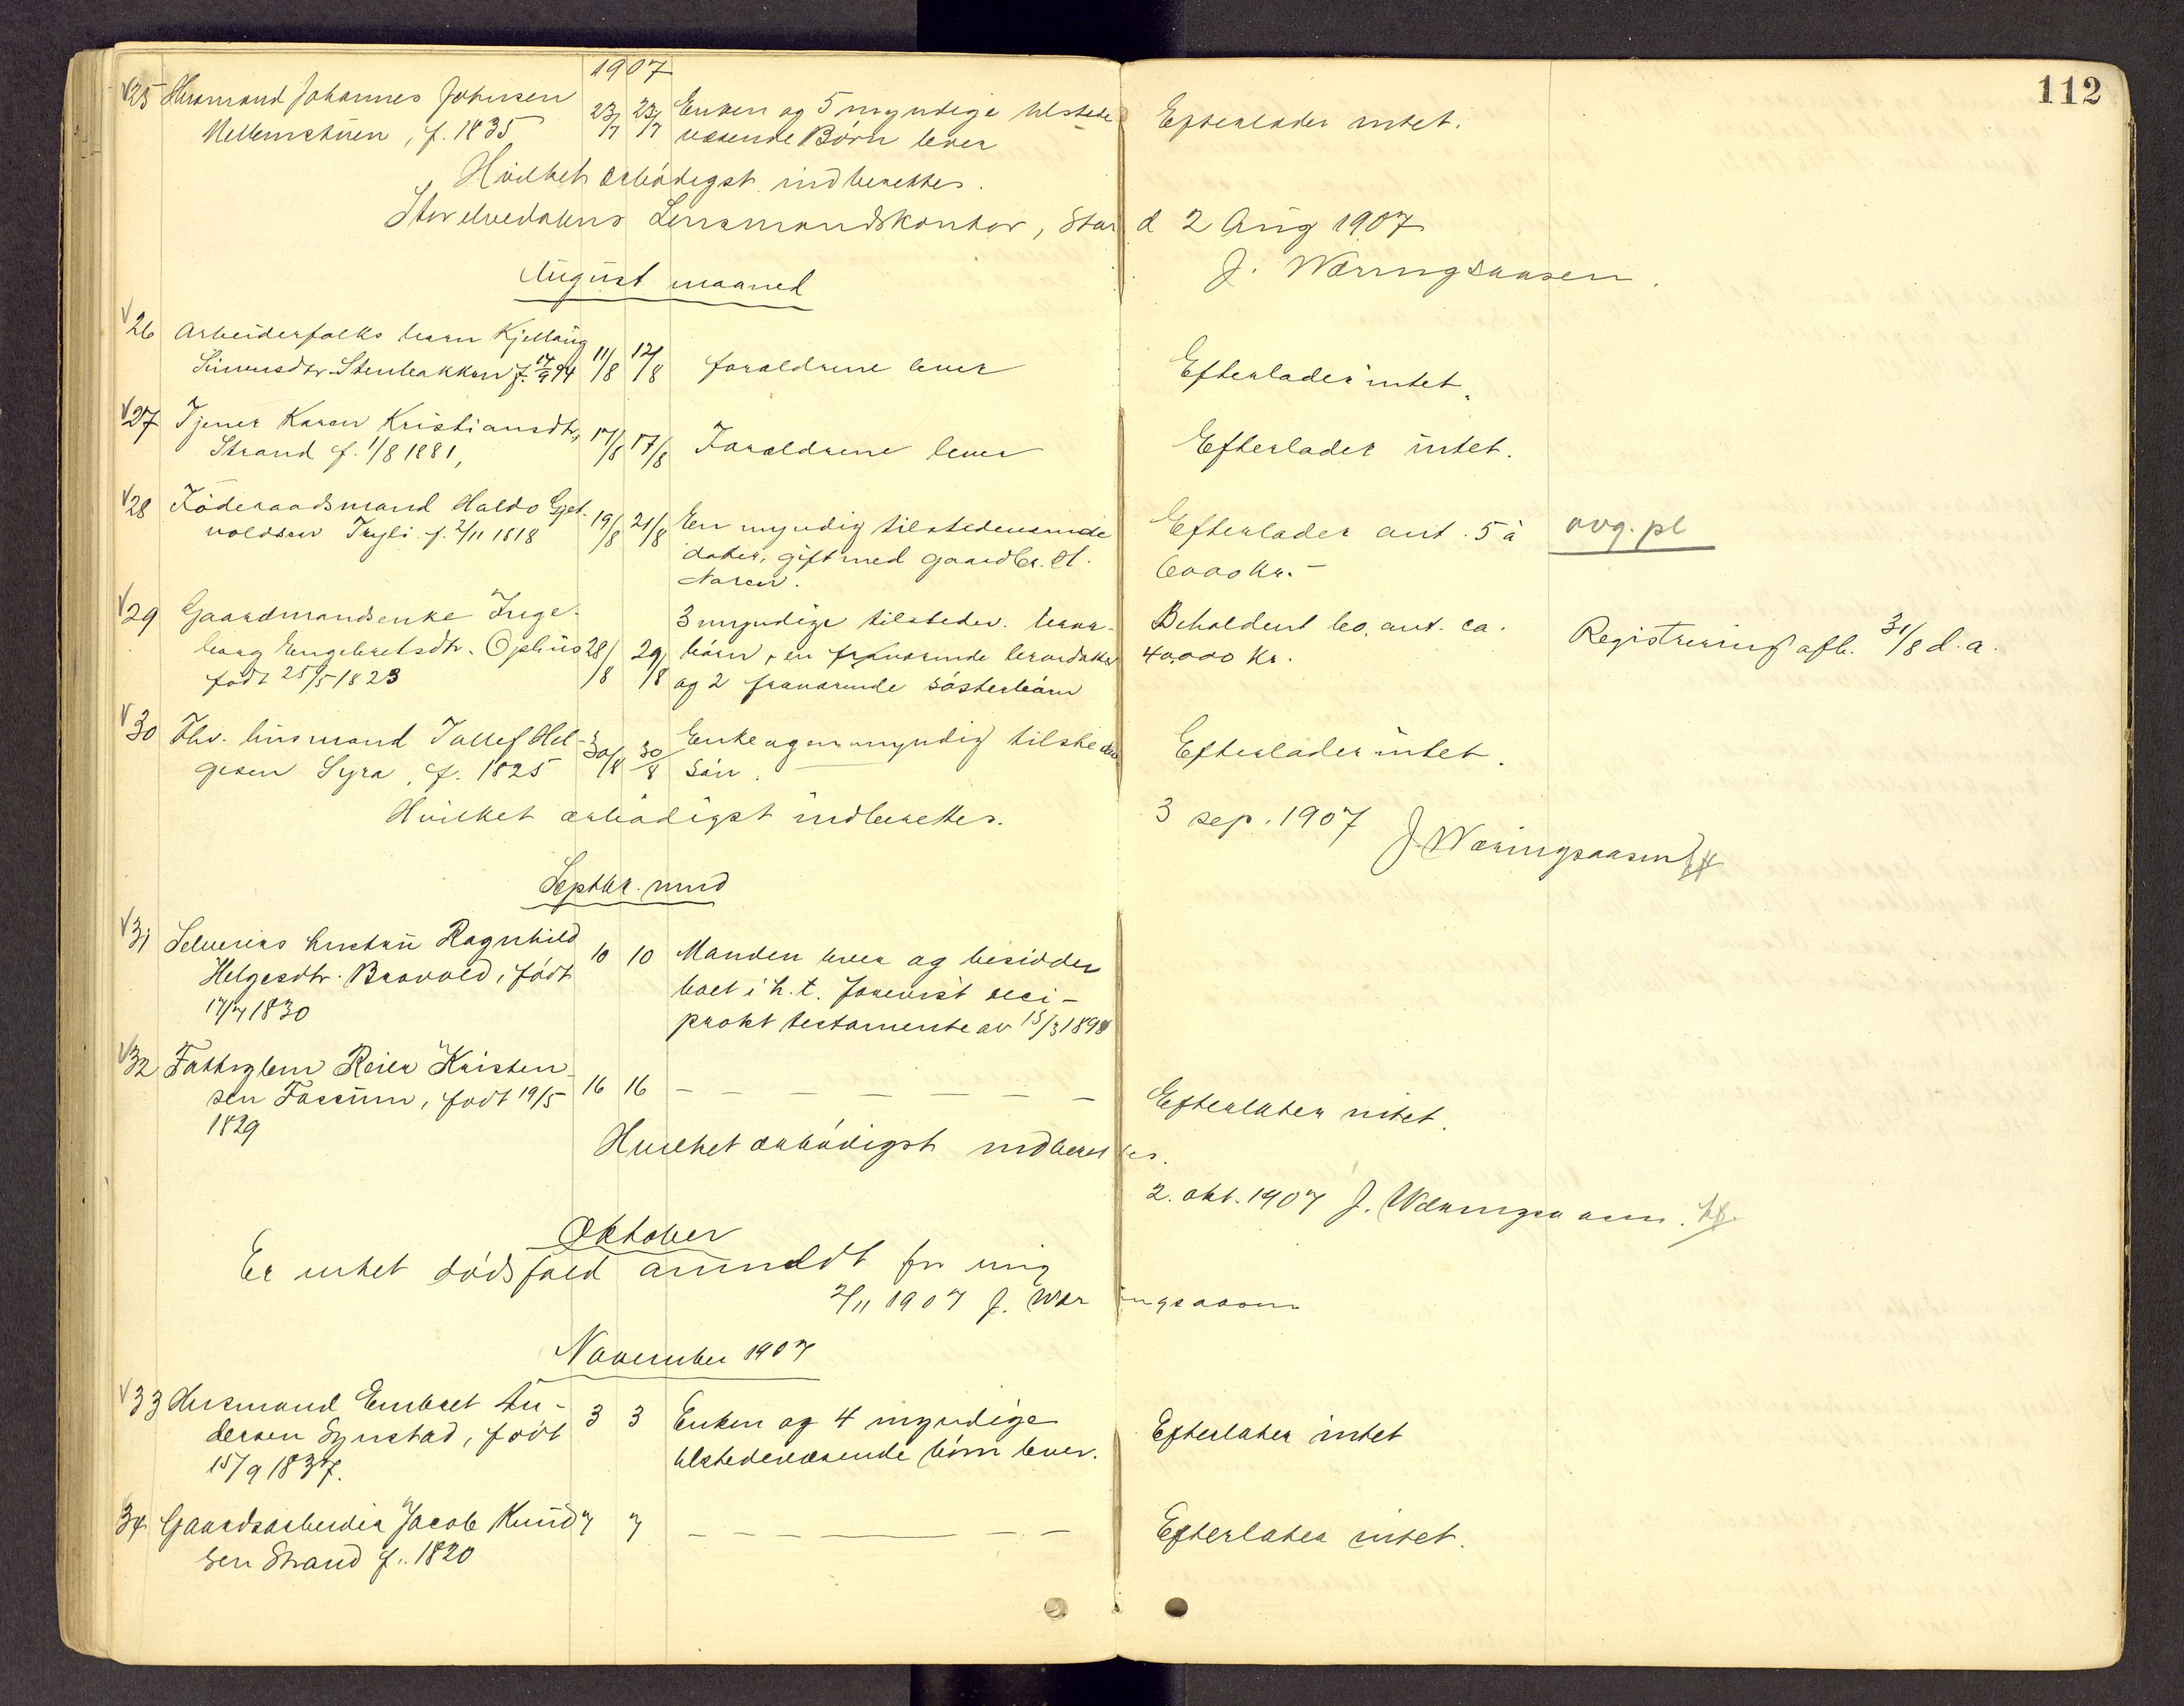 112
1907
25 Husmand Johannes Johnsen 23/7 23/7 Enken og 5 myndige tilstede Efterlader intet.
Mellemstuen, f. 1835 værende Børn lever
Hvilket ærbödigst indberettes.
Storelvedalens Lensmandskontor, Stai d 2 Aug 1907
J. Wæringsaasen.
August maaned
26 Arbeiderfolks barn Kjellaug
Simensdtr. Stenbakken f. 14/9 94 11/8 12/8 foraldrene lever Efterlader intet.
27 Tjener Karen Kristiansdtr, 17/8 17/8 Foraldrene lever Efterlader intet.
Strand f. 1/8 1881,
28 Föderaadsmand Haldo Gjet- 19/8 21/8 En myndig tilstedeværende Efterlader ant. 5 à avg. pl
voldsen Tryli f. 2/11 1818 dater, gift med gaardbr. H. 6000 kr. -
Naren.
29 Gaardmandsenke Inge- 3 myndige tilstedev. barne- Beholdent bo, ant. ca. Registrering afh. 31/8 d. a.
borg Engebretsdtr. Ophus 28/8 29/8 börn, en fraværende brordatter 40,000 Kr.
födt 25/5 1823 og 2 fraværende sösterbörn
30 Fhv. husmand Tollef Hel- 30/8 30/8 Enke og en myndig tilstedev. Efterlader intet.
gesen Syra, f. 1825 sön.
Hvilket ærbödigst indberettes. 3 sep. 1907 J. Wæringsaasen
Septbr. mnd
31 Selveiers hustru Ragnhild 10 10 Manden lever og besidder
Helgesdtr. Bravold, födt boet i h. t. forevist reci-
17/7 1830 prokt testamente av 15/3 1898
32 Fattiglem Reier Kristen- 16 16 — — — — — — — Efterlater intet.
sen Fossum, födt 19/5
1829
Hvilket ærbödigst indberettes.
2. okt. 1907 J. Wæringsaasen.
Oktober
Er intet dödsfald anmeldt for mig
2/11 1907 J. Wæringsaasen
November 1907
33 Husmand Embret An- 3 3 Enken og 4 myndige Efterlater intet
dersen Synstad, födt tilstedeværende börn lever.
15/9 1837.
34 Gaardsarbeider Jacob Knud 7 7 — — — — — — Efterlater intet.
sen Strand f. 1820